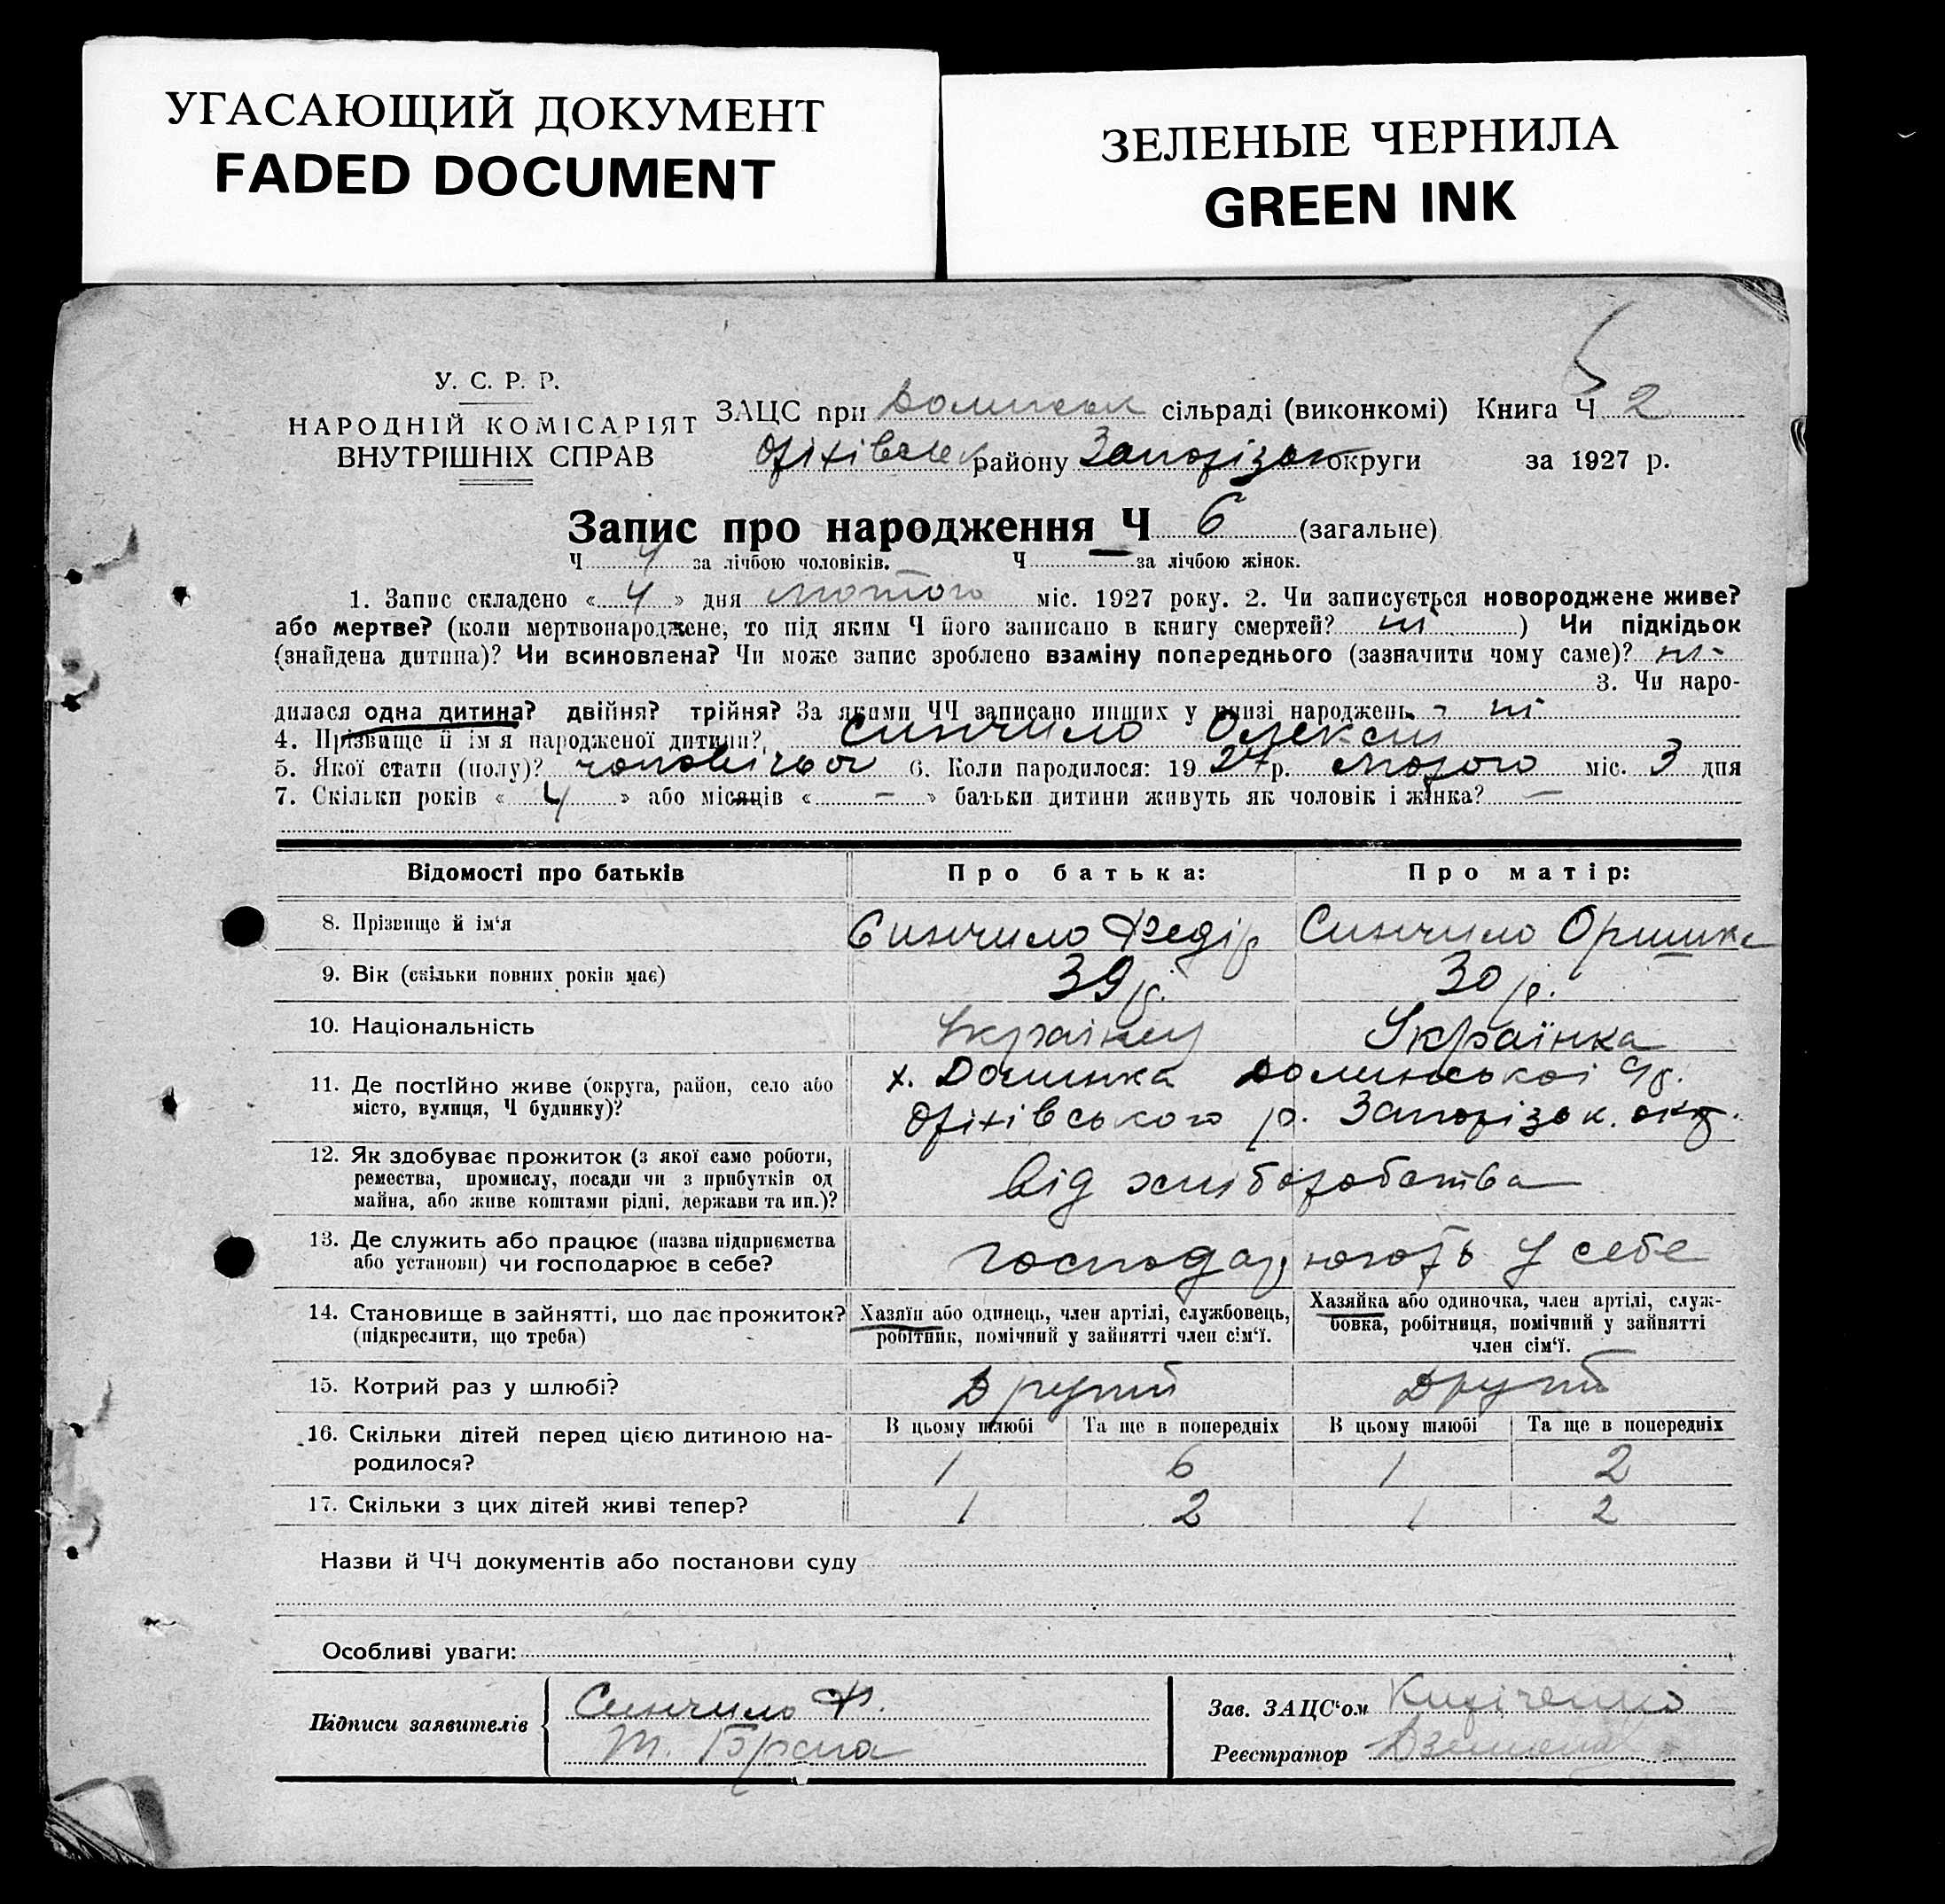 УГАСАЮЩИЙ ДОКУМЕНТ
FADED DOCUMENT
ЗЕЛЕНЫЕ ЧЕРНИЛА
GREEN INK
У. С. Р. Р.
НАРОДНІЙ КОМІСАРІЯТ
ВНУТРІШНІХ СПРАВ
ЗАЦС при Долинськ сільраді (виконкомі) Книга Ч 2
Оріхівськ району Запорізьк округи за 1927 р.
Запис про народження Ч 6 (загальне)
Ч 4 за лічбою чоловіків. Ч — за лічбою жінок.
1. Запис складено « 4 » дня лютого міс. 1927 року. 2. Чи записується новороджене живе?
або мертве? (коли мертвонароджене, то під яким Ч його записано в книгу смертей? ні ) Чи підкідьок
(знайдена дитина)? Чи всиновлена? Чи може запис зроблено взаміну попереднього (зазначити чому саме)? ні
3. Чи наро-
дилася одна дитина? двійня? трійня? За якими ЧЧ записано инших у книзі народжень - ні
4. Прізвище й ім'я народженої дитини? Синчило Олексій
5. Якої стати (полу)? чоловічої 6. Коли народилося: 1927 р. лютого міс. 3 дня
7. Скільки років « 4 » або місяців « — » батьки дитини живуть як чоловік і жінка? —
Відомості про батьків Про батька: Про матір:
8. Прізвище й ім'я Синчило Федір Синчило Оришка
9. Вік (скільки повних років має) 39 р. 30 р.
10. Національність Українец Українка
11. Де постійно живе (округа, район, село або х. Долинка Долинської с/р.
місто, вулиця, Ч будинку)? Оріхівського р. Запорізьк. окр.
12. Як здобуває прожиток (з якої саме роботи,
ремества, промислу, посади чи з прибутків од від хліборобства
майна, або живе коштами рідні, держави та ин.)?
13. Де служить або працює (назва підприємства
або установи) чи господарює в себе? господарюють у себе
14. Становище в зайнятті, що дає прожиток? Хазяїн або одинець, член артілі, службовець, Хазяйка або одиночка, член артілі, служ-
(підкреслити, що треба) робітник, помічний у зайнятті член сім'ї. бовка, робітниця, помічний у зайнятті
член сім'ї.
15. Котрий раз у шлюбі? Другий Другий
16. Скільки дітей перед цією дитиною на- В цьому шлюбі Та ще в попередніх В цьому шлюбі Та ще в попередніх
родилося? 1 6 1 2
17. Скільки з цих дітей живі тепер? 1 2 1 2
Назви й ЧЧ документів або постанови суду
Особливі уваги:
Підписи заявителів Синчило Ф. Зав. ЗАЦС'ом Кириченко
Т. Брага Реєстратор